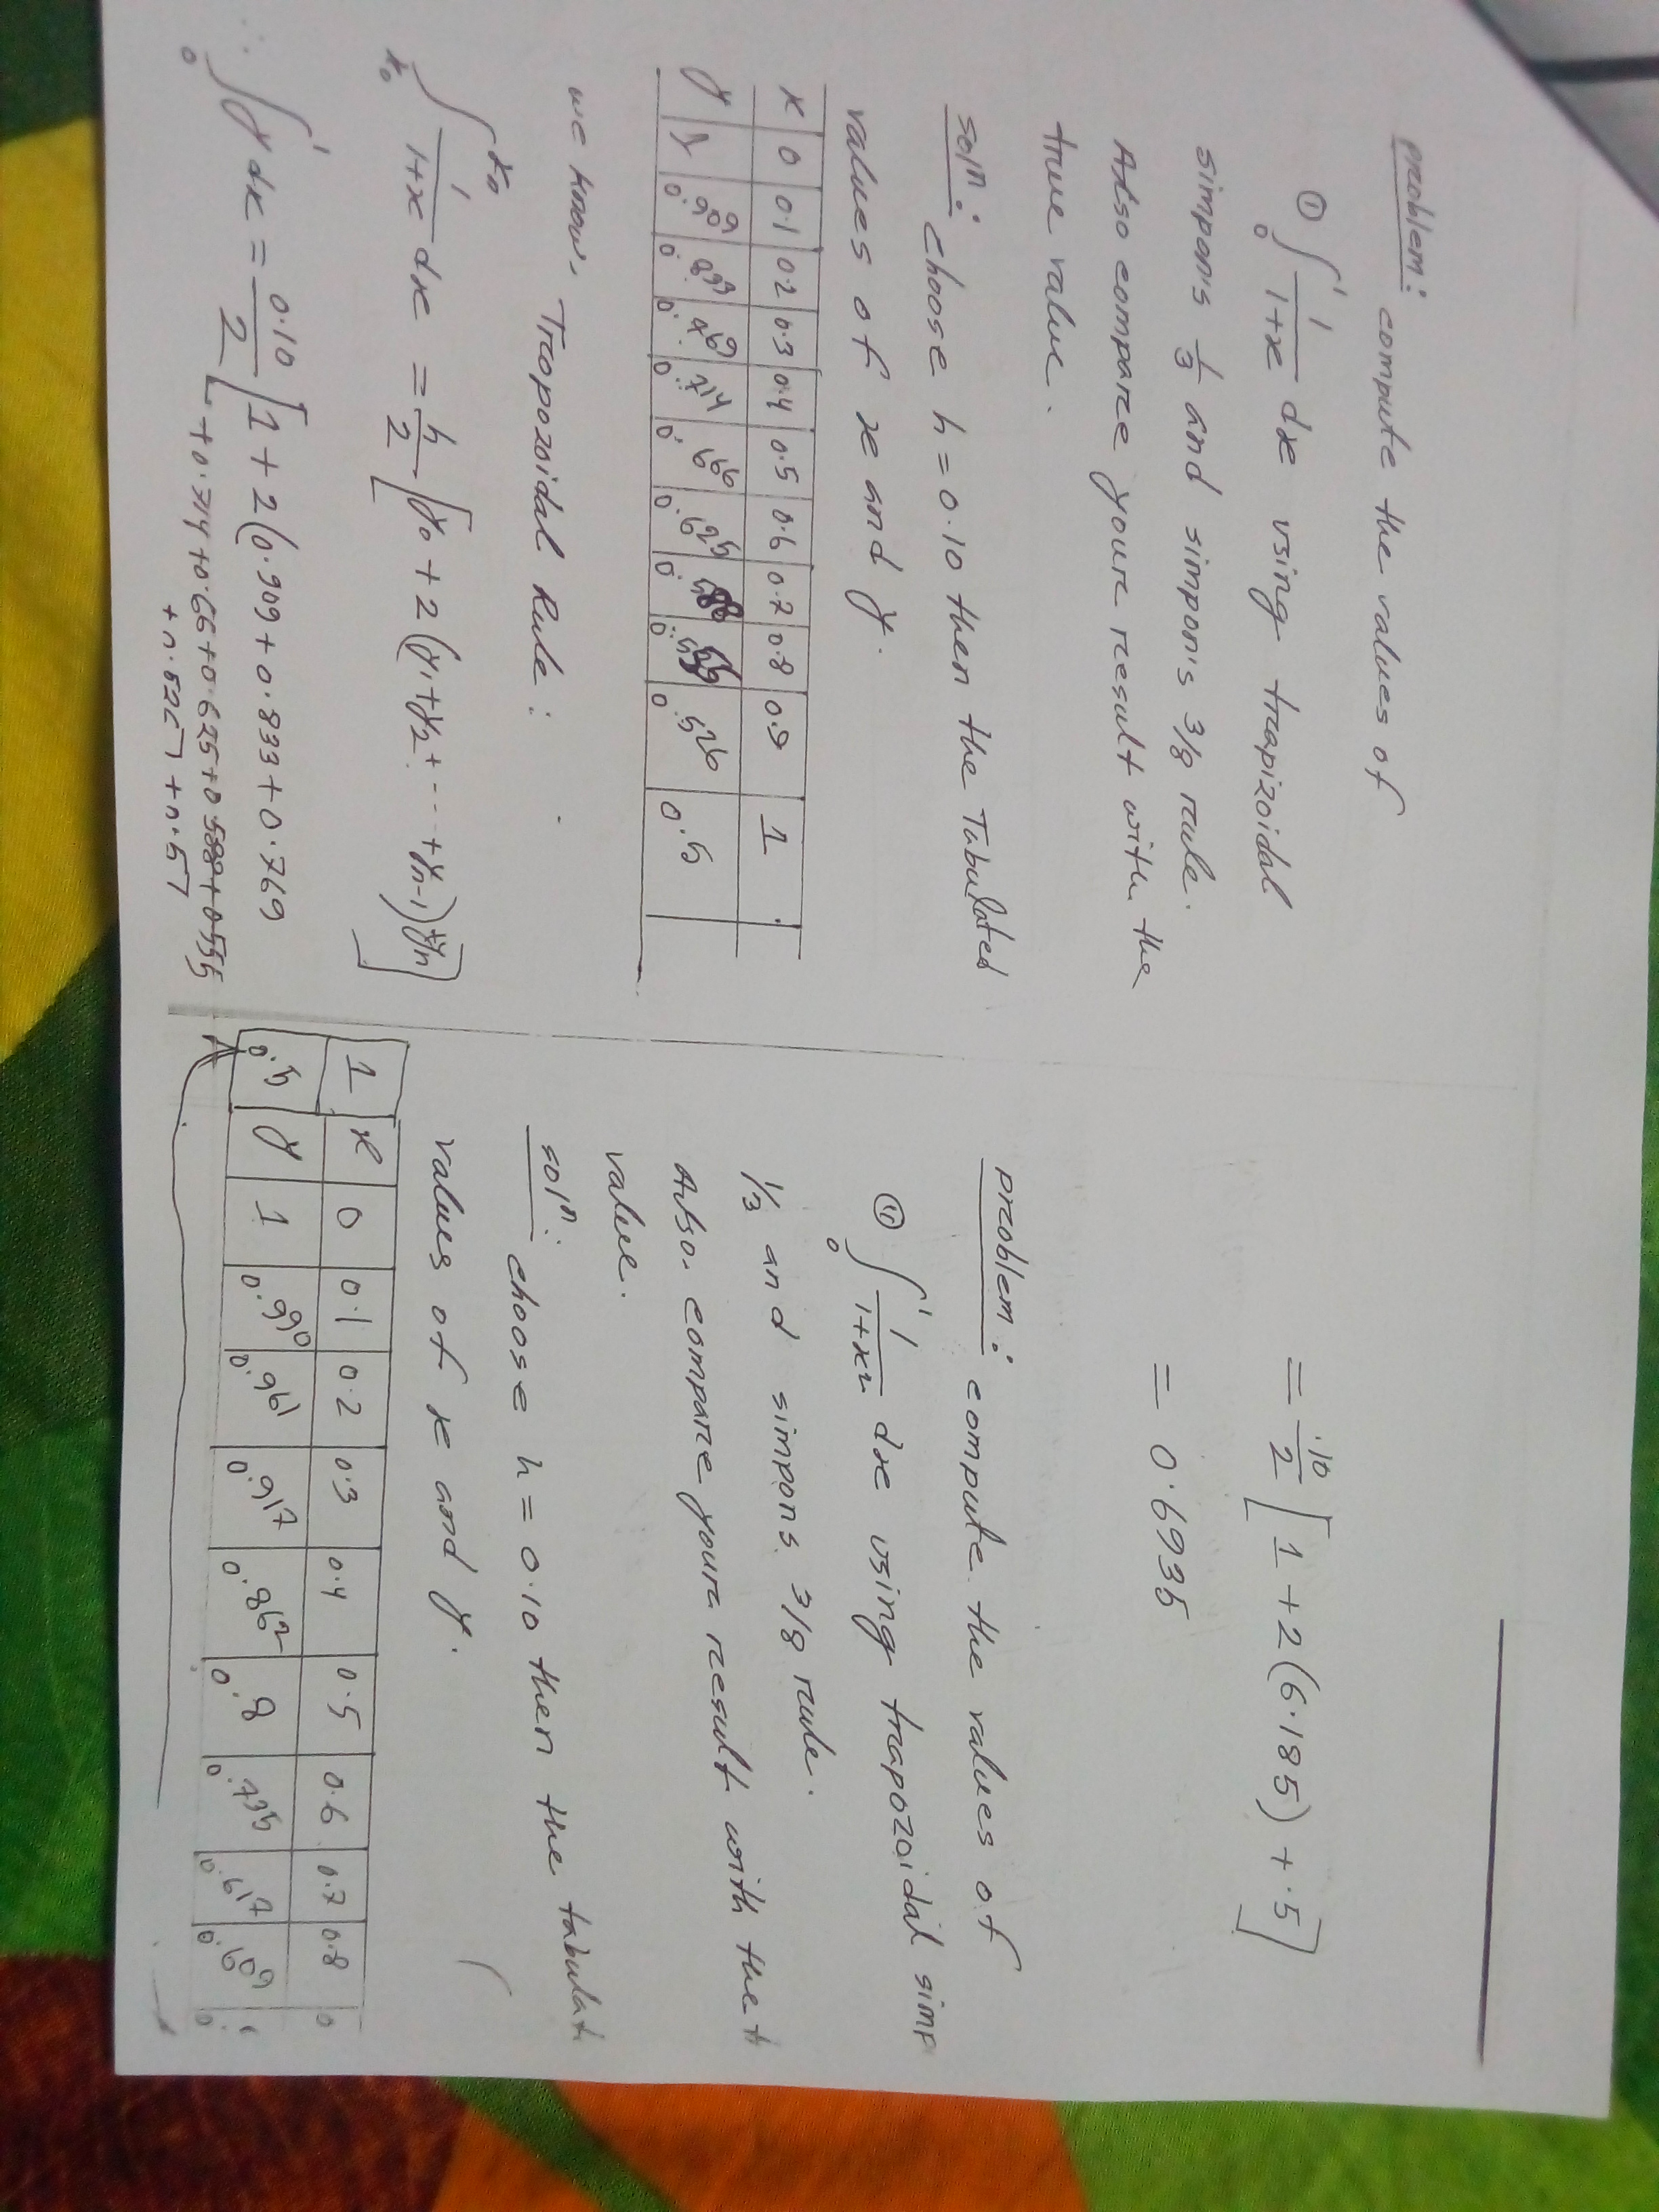 problem:
compute the values of
① ∫₀¹ 1/(1+x) dx using trapizoidal
simpon's 1/3 and simpon's 3/8 rule.
Also compare your result with the
true value.
solⁿ:
choose h = 0.10 then the Tabulated
values of x and y.
x 0 0.1 0.2 0.3 0.4 0.5 0.6 0.7 0.8 0.9 1
y 1 0.909 0.833 0.769 0.714 0.666 0.625 0.588 0.555 0.526 0.5
we know,
Tropozoidal Rule:
∫ₓ₀ˣⁿ 1/(1+x) dx = h/2 [y₀ + 2 (y₁+y₂+ --- +yₙ₋₁)+yₙ]
∴ ∫₀¹ y dx = 0.10/2 [1 + 2 (0.909 + 0.833 + 0.769
+0.714 +0.66 +0.625 +0.588 +0.555
= .10/2 [1 + 2 (6.185) + .5]
= 0.6935
problem:
compute the values of
∫₀¹ 1/(1+x²) dx using trapozoidal simp
1/3 and simpons 3/8 rule.
Also, compare your result with the t
value.
solⁿ:
choose h = 0.10 then the tabulat
values of x and y.
1 x 0 0.1 0.2 0.3 0.4 0.5 0.6 0.7 0.8
0.5 y 1 0.990 0.961 0.917 0.862 0.8 0.735 0.617 0.609